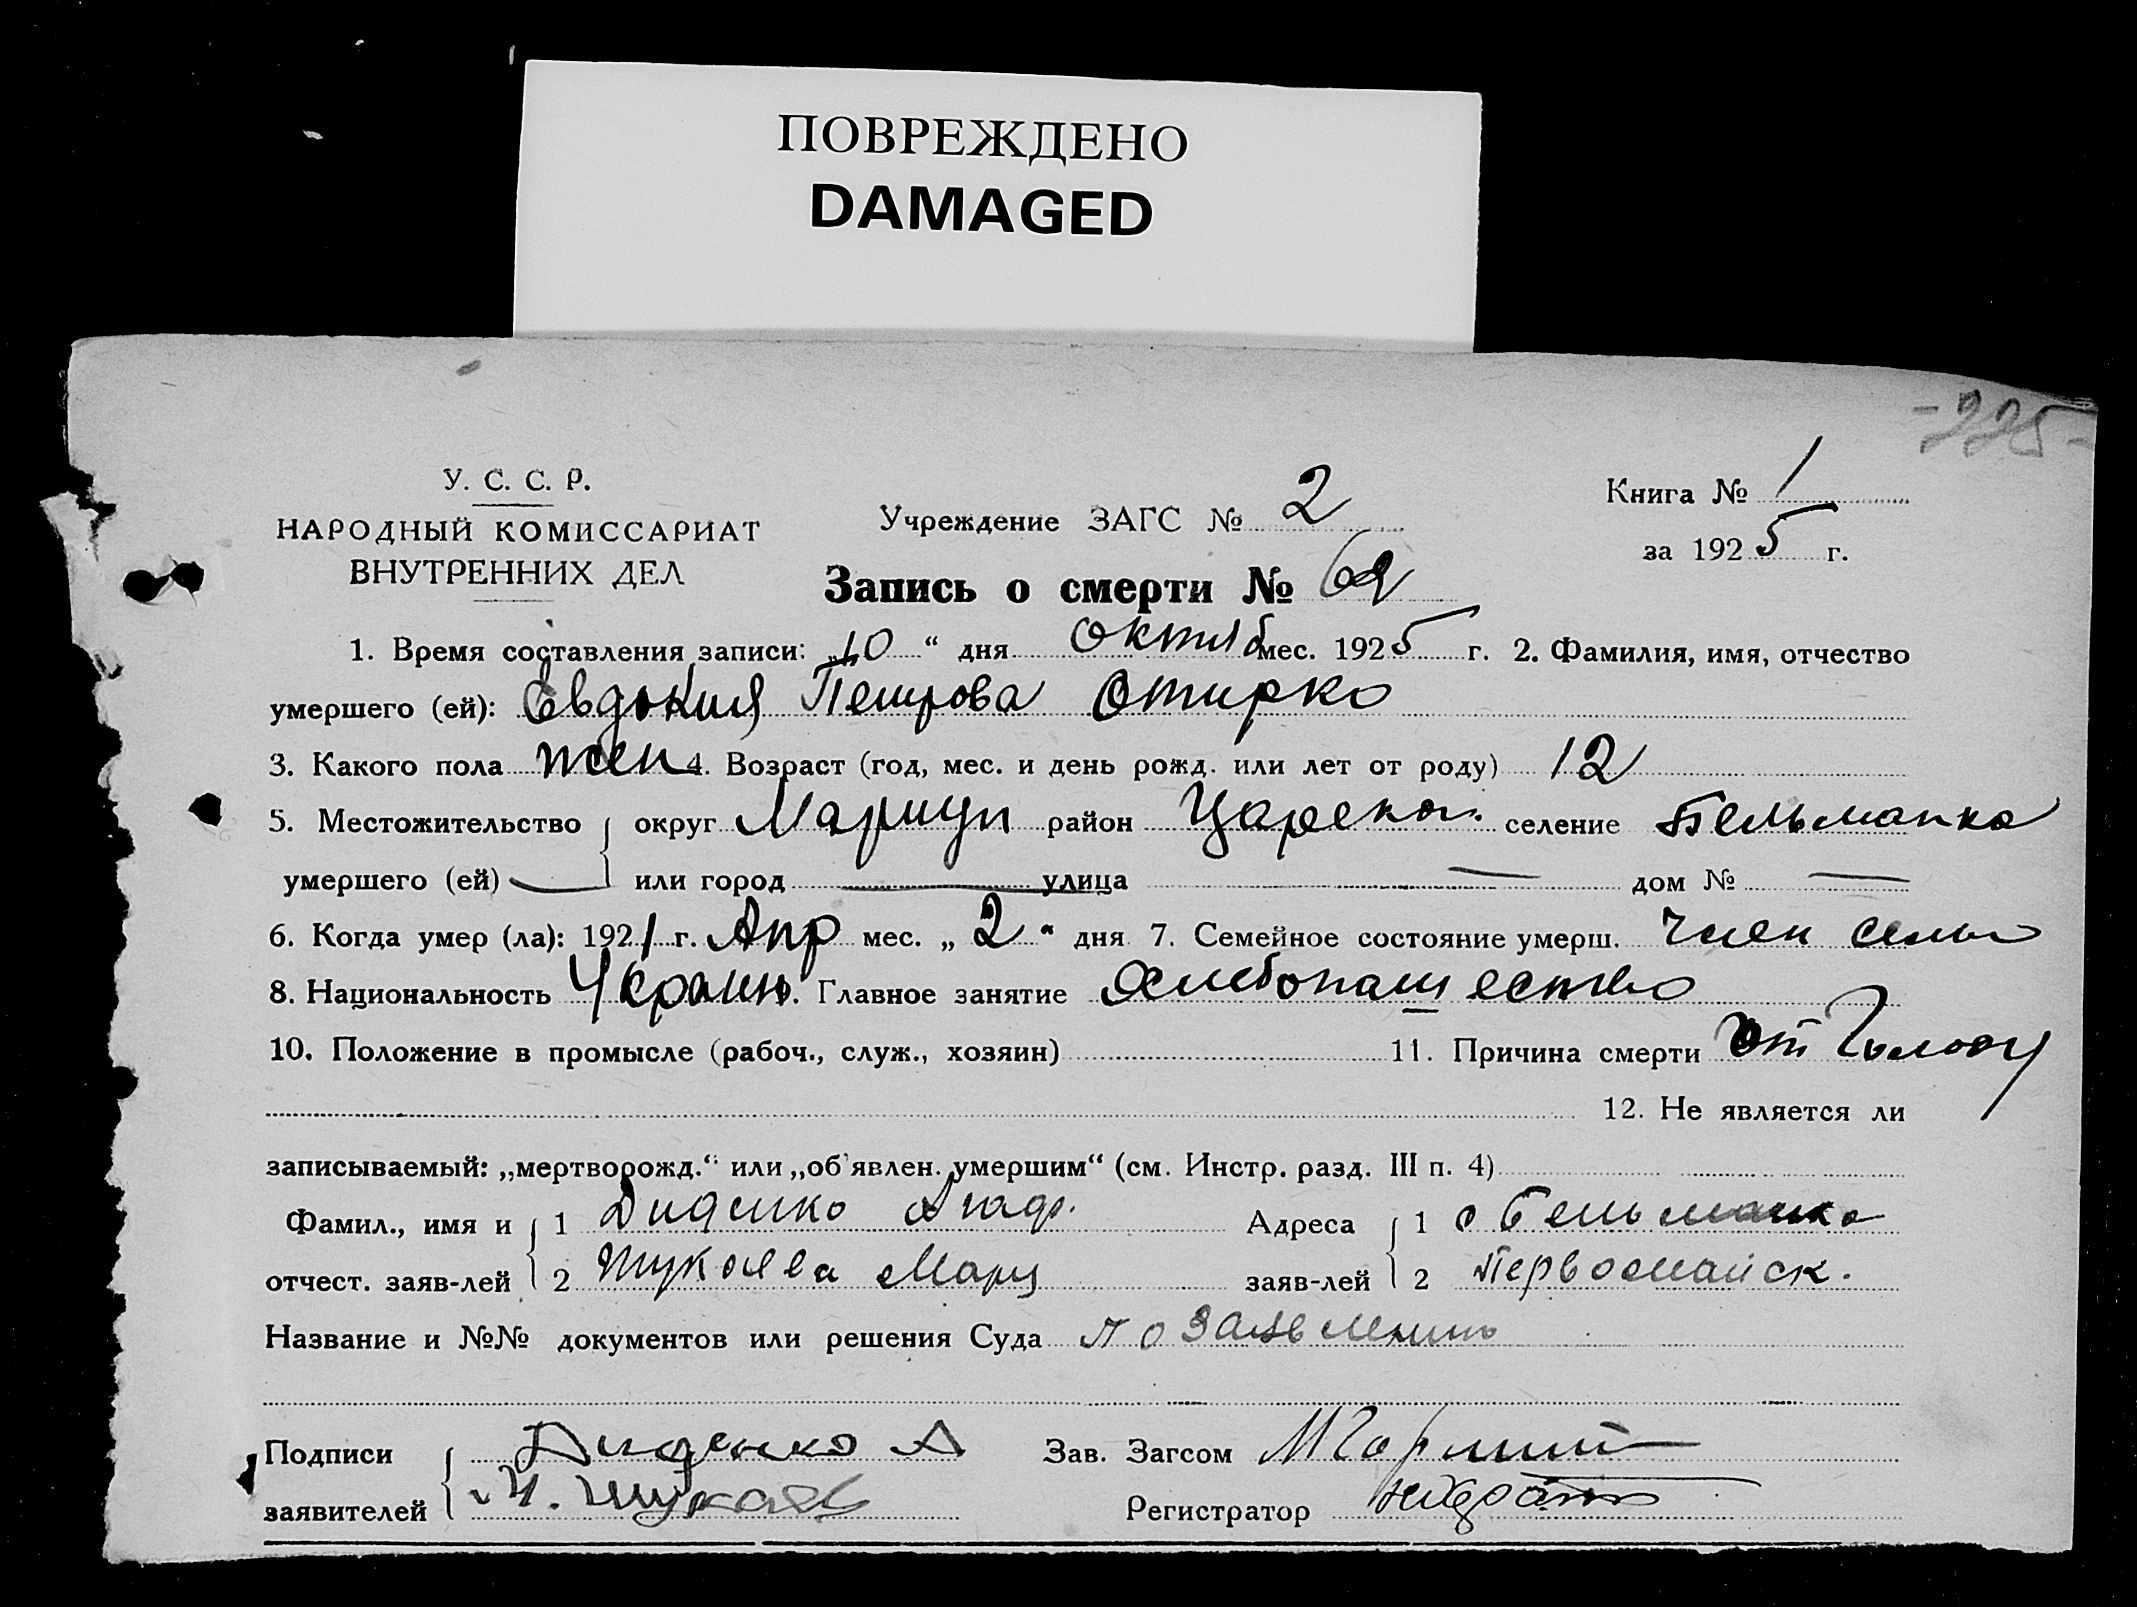 ПОВРЕЖДЕНО
DAMAGED
-225-
У. С. С. Р.
НАРОДНЫЙ КОМИССАРИАТ
ВНУТРЕННИХ ДЕЛ
Учреждение ЗАГС № 2
Книга № 1
за 1925 г.
Запись о смерти №
1. Время составления записи: „10“ дня Октяб мес. 1925 г. 2. Фамилия, имя, отчество
умершего (ей): Евдокия Петрова Отирко
3. Какого пола жен 4. Возраст (год, мес. и день рожд. или лет от роду) 12
5. Местожительство округ Мариуп район Царекон. селение Бельманка
умершего (ей) или город — улица — дом № —
6. Когда умер (ла): 1921 г. Апр мес. „2“ дня 7. Семейное состояние умерш. член семьи
8. Национальность Украин. Главное занятие Хлебопашество
10. Положение в промысле (рабоч., служ., хозяин) 11. Причина смерти от Голоду
12. Не является ли
записываемый: „мертворожд.“ или „об'явлен. умершим“ (см. Инстр. разд. III п. 4)
Фамил., имя и 1 Диденко Агаф. Адреса 1 с Бельманка
отчест. заяв-лей 2 Шукаева Мару заяв-лей 2 Первомайск.
Название и №№ документов или решения Суда по заявлению
Подписи Диденко А Зав. Загсом
заявителей М. Шукаев Регистратор